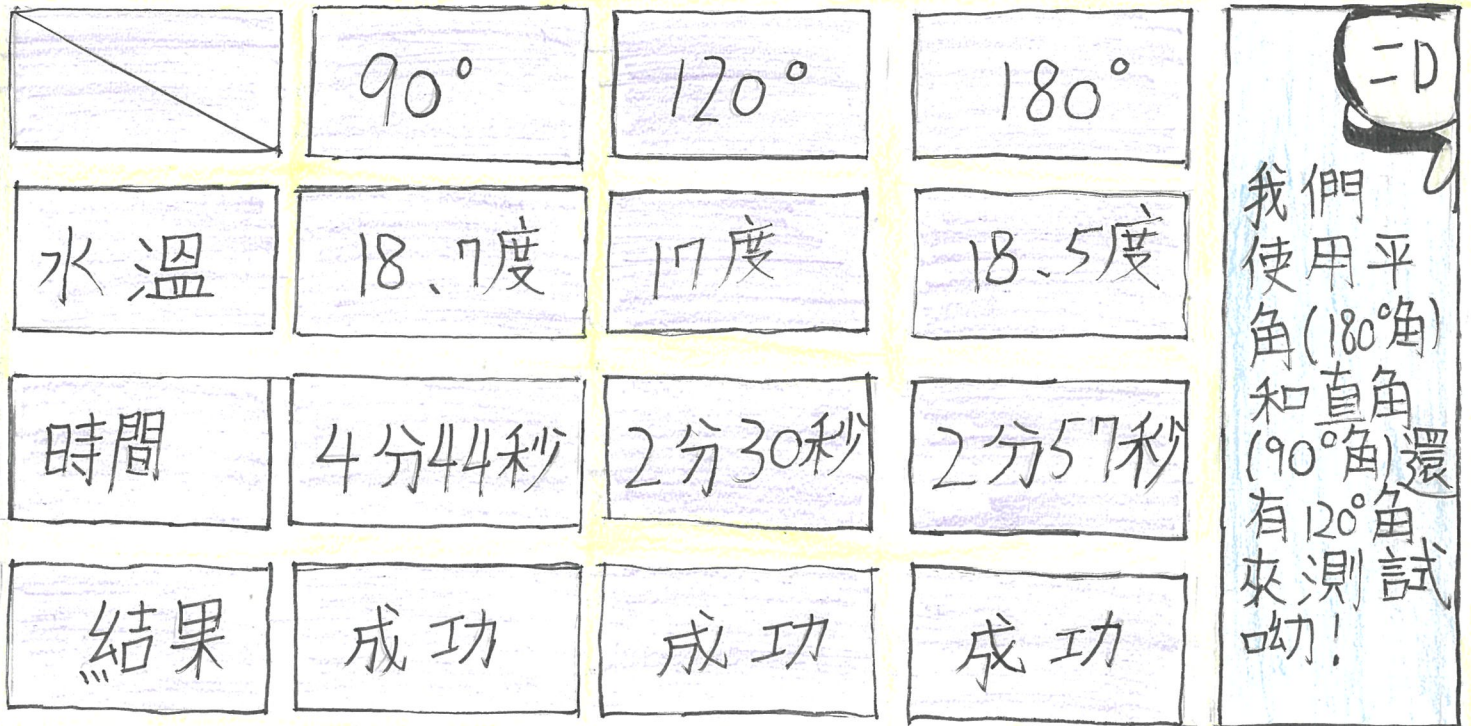 90° 120° 180°
水溫 18、7度 17度 18、5度
時間 4分44秒 2分30秒 2分57秒
結果 成功 成功 成功
我們
使用平
角(180°角)
和直角
(90°角)還
有120°角
來測試
呦!